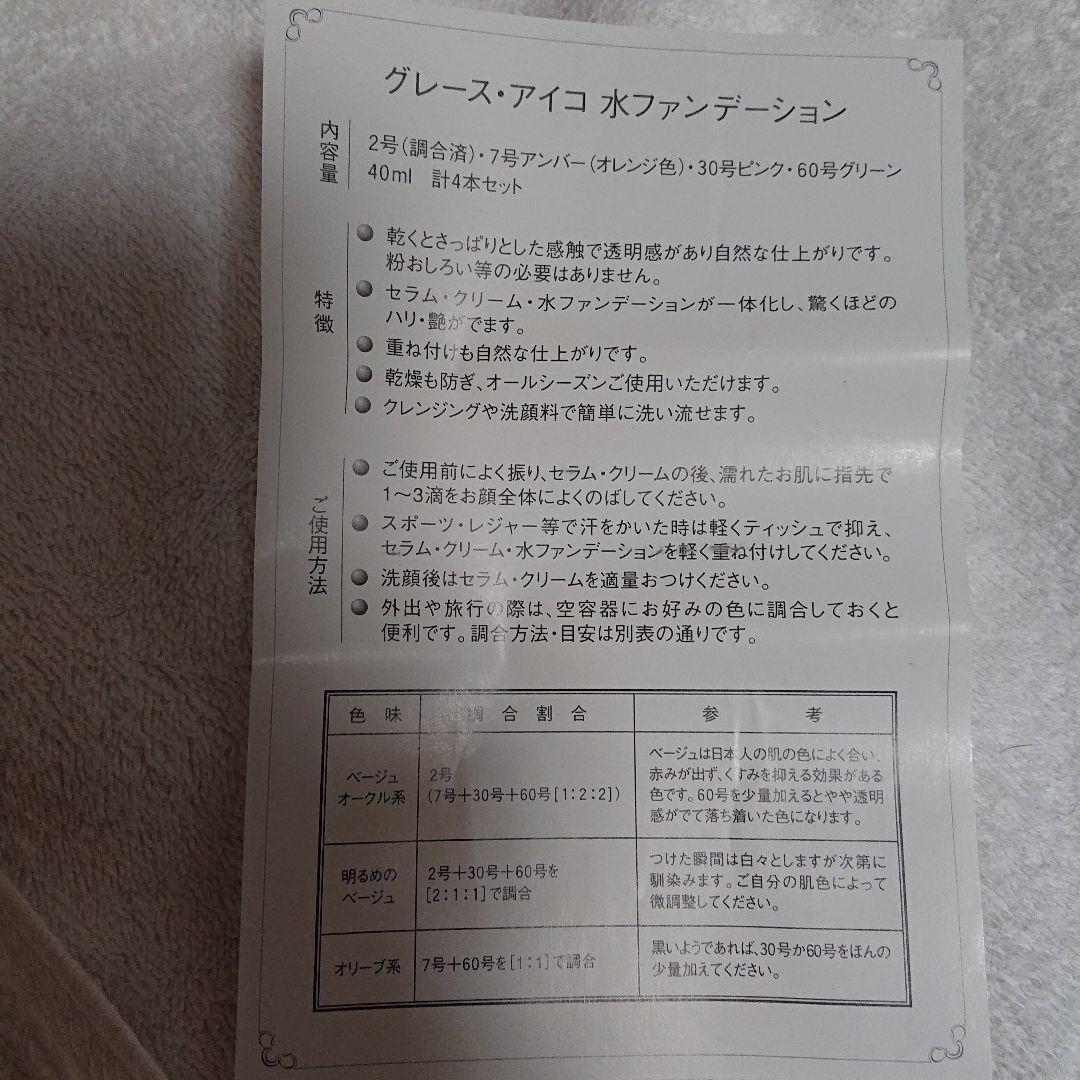 グレース・アイコ 水ファンデーション
内容量
2号(調合済)・7号アンバー(オレンジ色)・30号ピンク・60号グリーン
40ml 計4本セット
特徴
乾くとさっぱりとした感触で透明感があり自然な仕上がりです。
粉おしろい等の必要はありません。
セラム・クリーム・水ファンデーションが一体化し、驚くほどの
ハリ・艶がでます。
重ね付けも自然な仕上がりです。
乾燥も防ぎ、オールシーズンご使用いただけます。
クレンジングや洗顔料で簡単に洗い流せます。
ご使用方法
ご使用前によく振り、セラム・クリームの後、濡れたお肌に指先で
1〜3滴をお顔全体によくのばしてください。
スポーツ・レジャー等で汗をかいた時は軽くティッシュで抑え、
セラム・クリーム・水ファンデーションを軽く重ね付けしてください。
洗顔後はセラム・クリームを適量おつけください。
外出や旅行の際は、空容器にお好みの色に調合しておくと
便利です。調合方法・目安は別表の通りです。
色味 調合割合 参考
ベージュ
オークル系
2号
(7号+30号+60号[1:2:2])
ベージュは日本人の肌の色によく合い、
赤みが出ず、くすみを抑える効果がある
色です。60号を少量加えるとやや透明
感がでて落ち着いた色になります。
明るめの
ベージュ
2号+30号+60号を
[2:1:1]で調合
つけた瞬間は白々としますが次第に
馴染みます。ご自分の肌色によって
微調整してください。
オリーブ系
7号+60号を[1:1]で調合
黒いようであれば、30号か60号をほんの
少量加えてください。